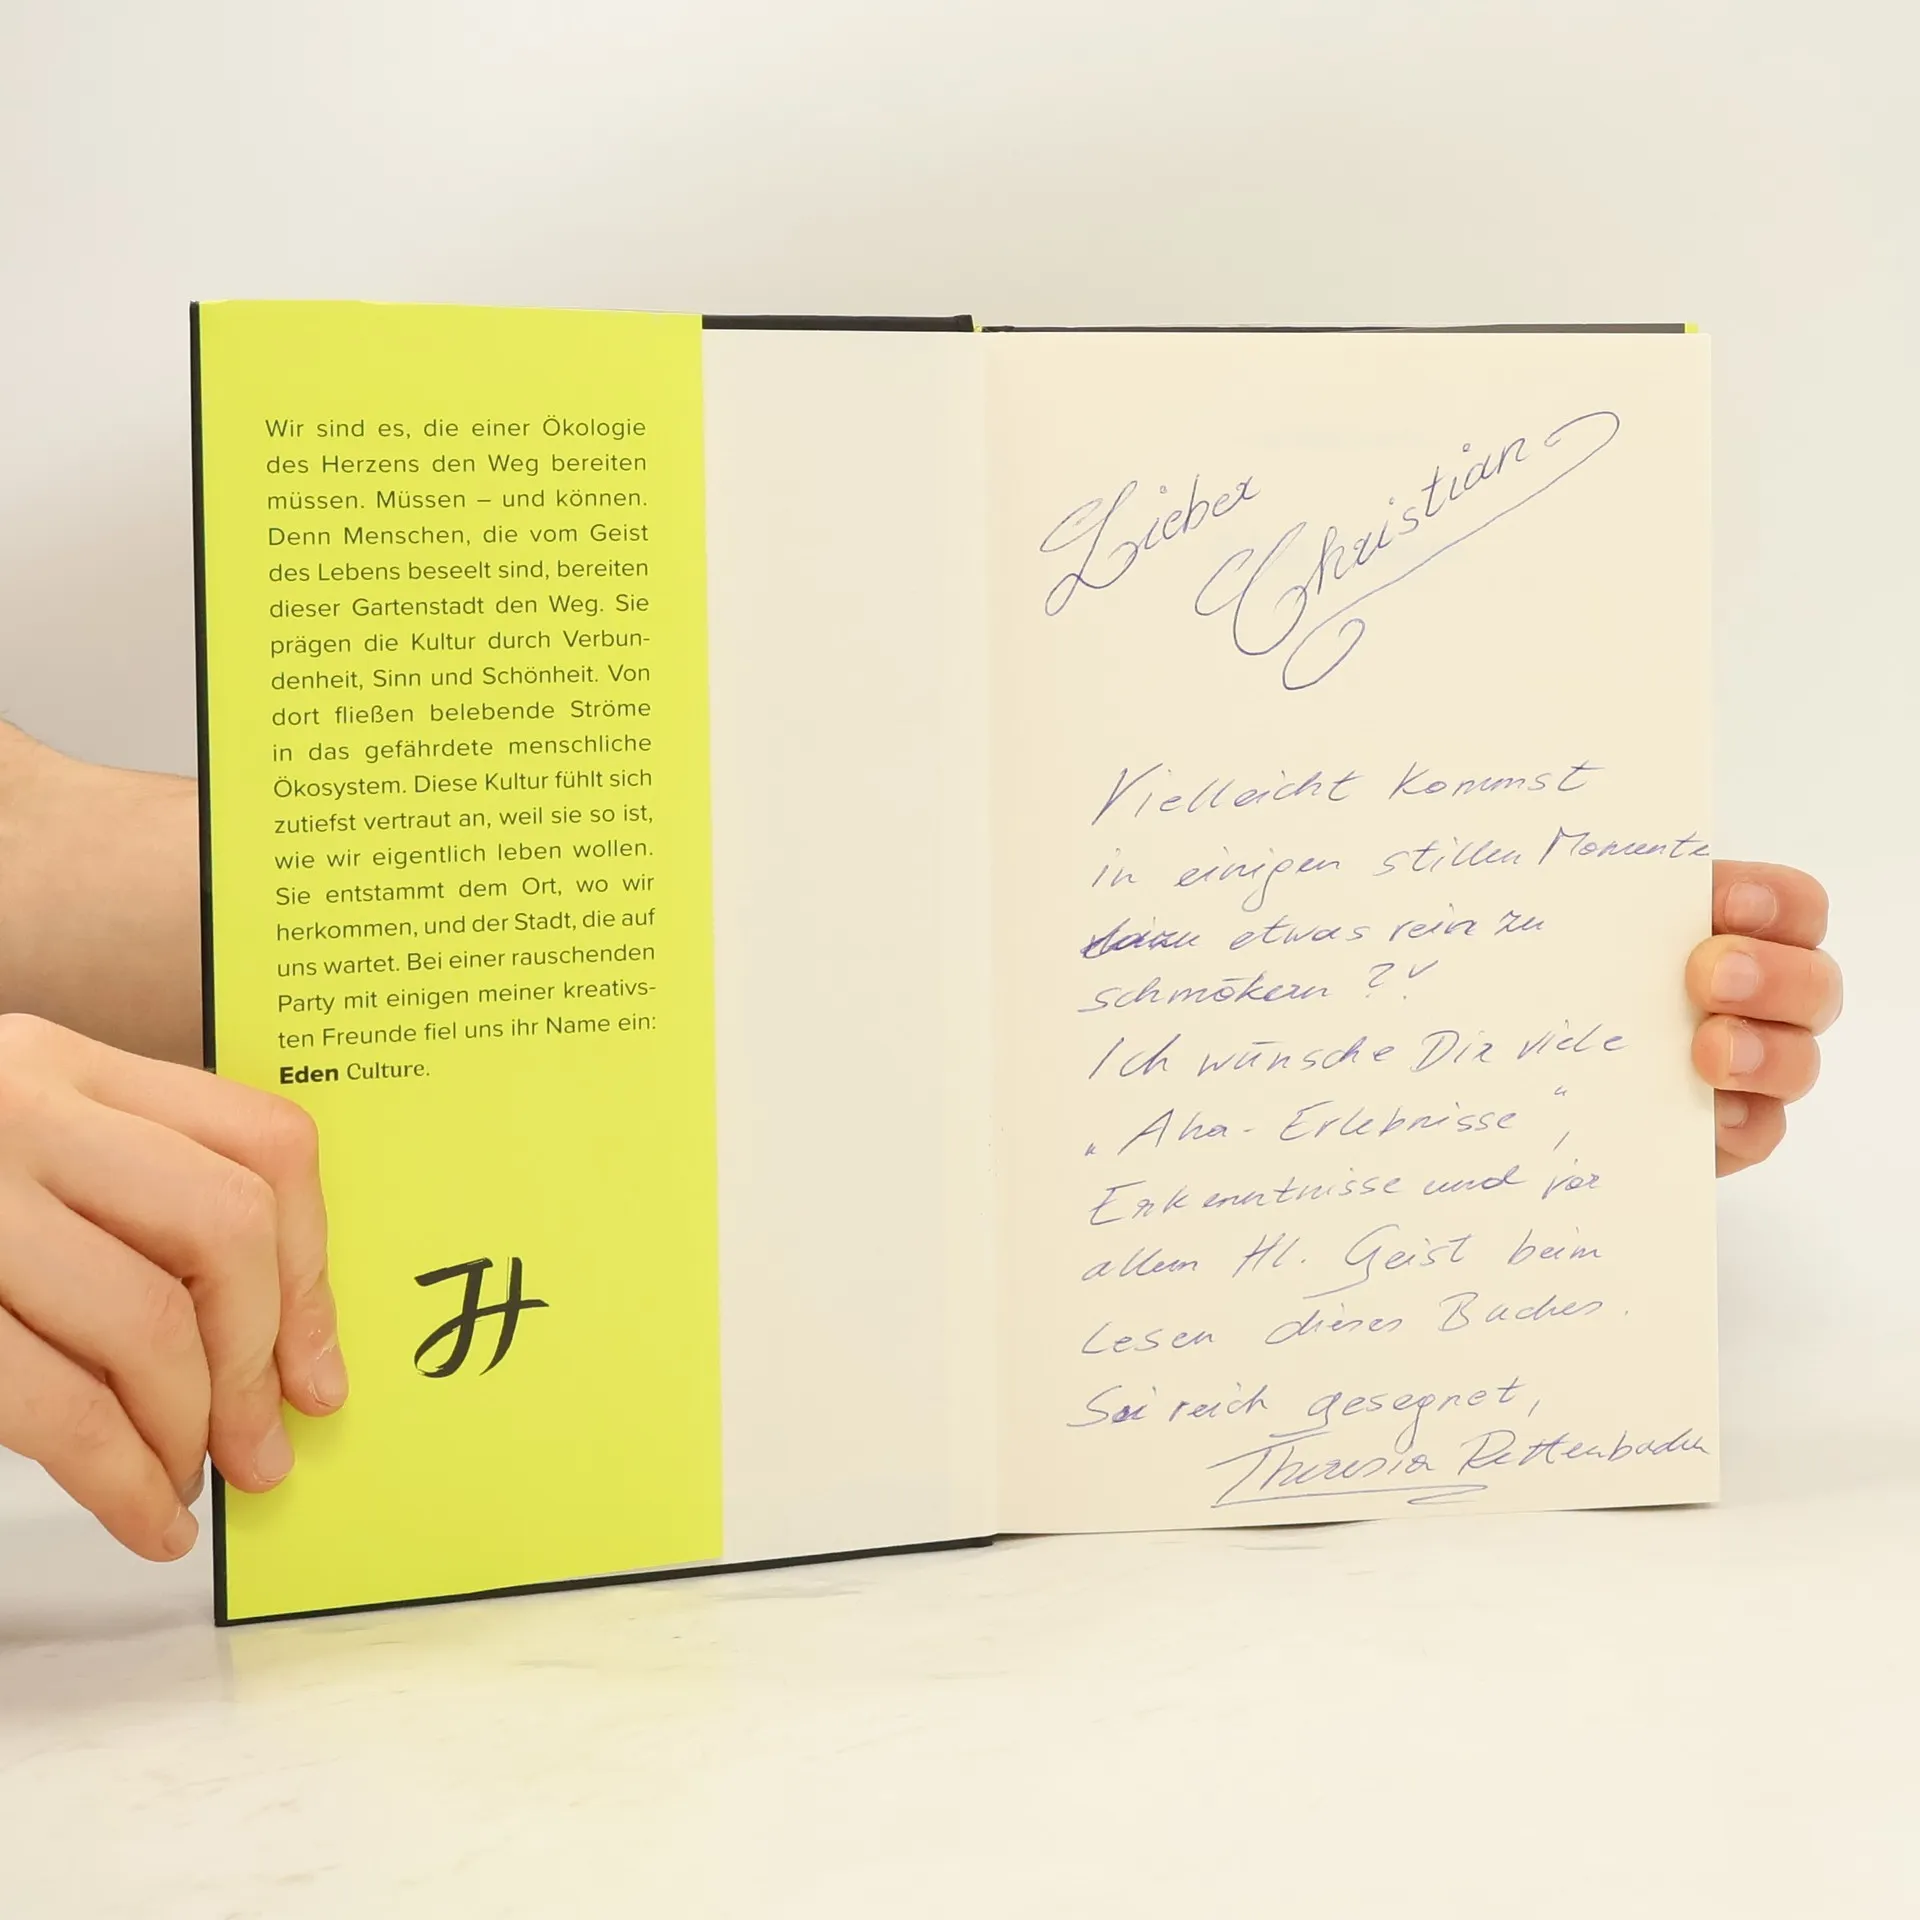 Wir sind es, die einer Ökologie
des Herzens den Weg bereiten
müssen. Müssen – und können.
Denn Menschen, die vom Geist
des Lebens beseelt sind, bereiten
dieser Gartenstadt den Weg. Sie
prägen die Kultur durch Verbun-
denheit, Sinn und Schönheit. Von
dort fließen belebende Ströme
in das gefährdete menschliche
Ökosystem. Diese Kultur fühlt sich
zutiefst vertraut an, weil sie so ist,
wie wir eigentlich leben wollen.
Sie entstammt dem Ort, wo wir
herkommen, und der Stadt, die auf
uns wartet. Bei einer rauschenden
Party mit einigen meiner kreativs-
ten Freunde fiel uns ihr Name ein:
Eden Culture.
JH
Lieber
Christian
Vielleicht kommst
in einigen stillen Momente
dazu etwas rein zu
schmökern ?
Ich wünsche Dir viele
„Aha-Erlebnisse“,
Erkenntnisse und vor
allem Hl. Geist beim
Lesen dieses Buches.
Sei reich gesegnet,
Theresia